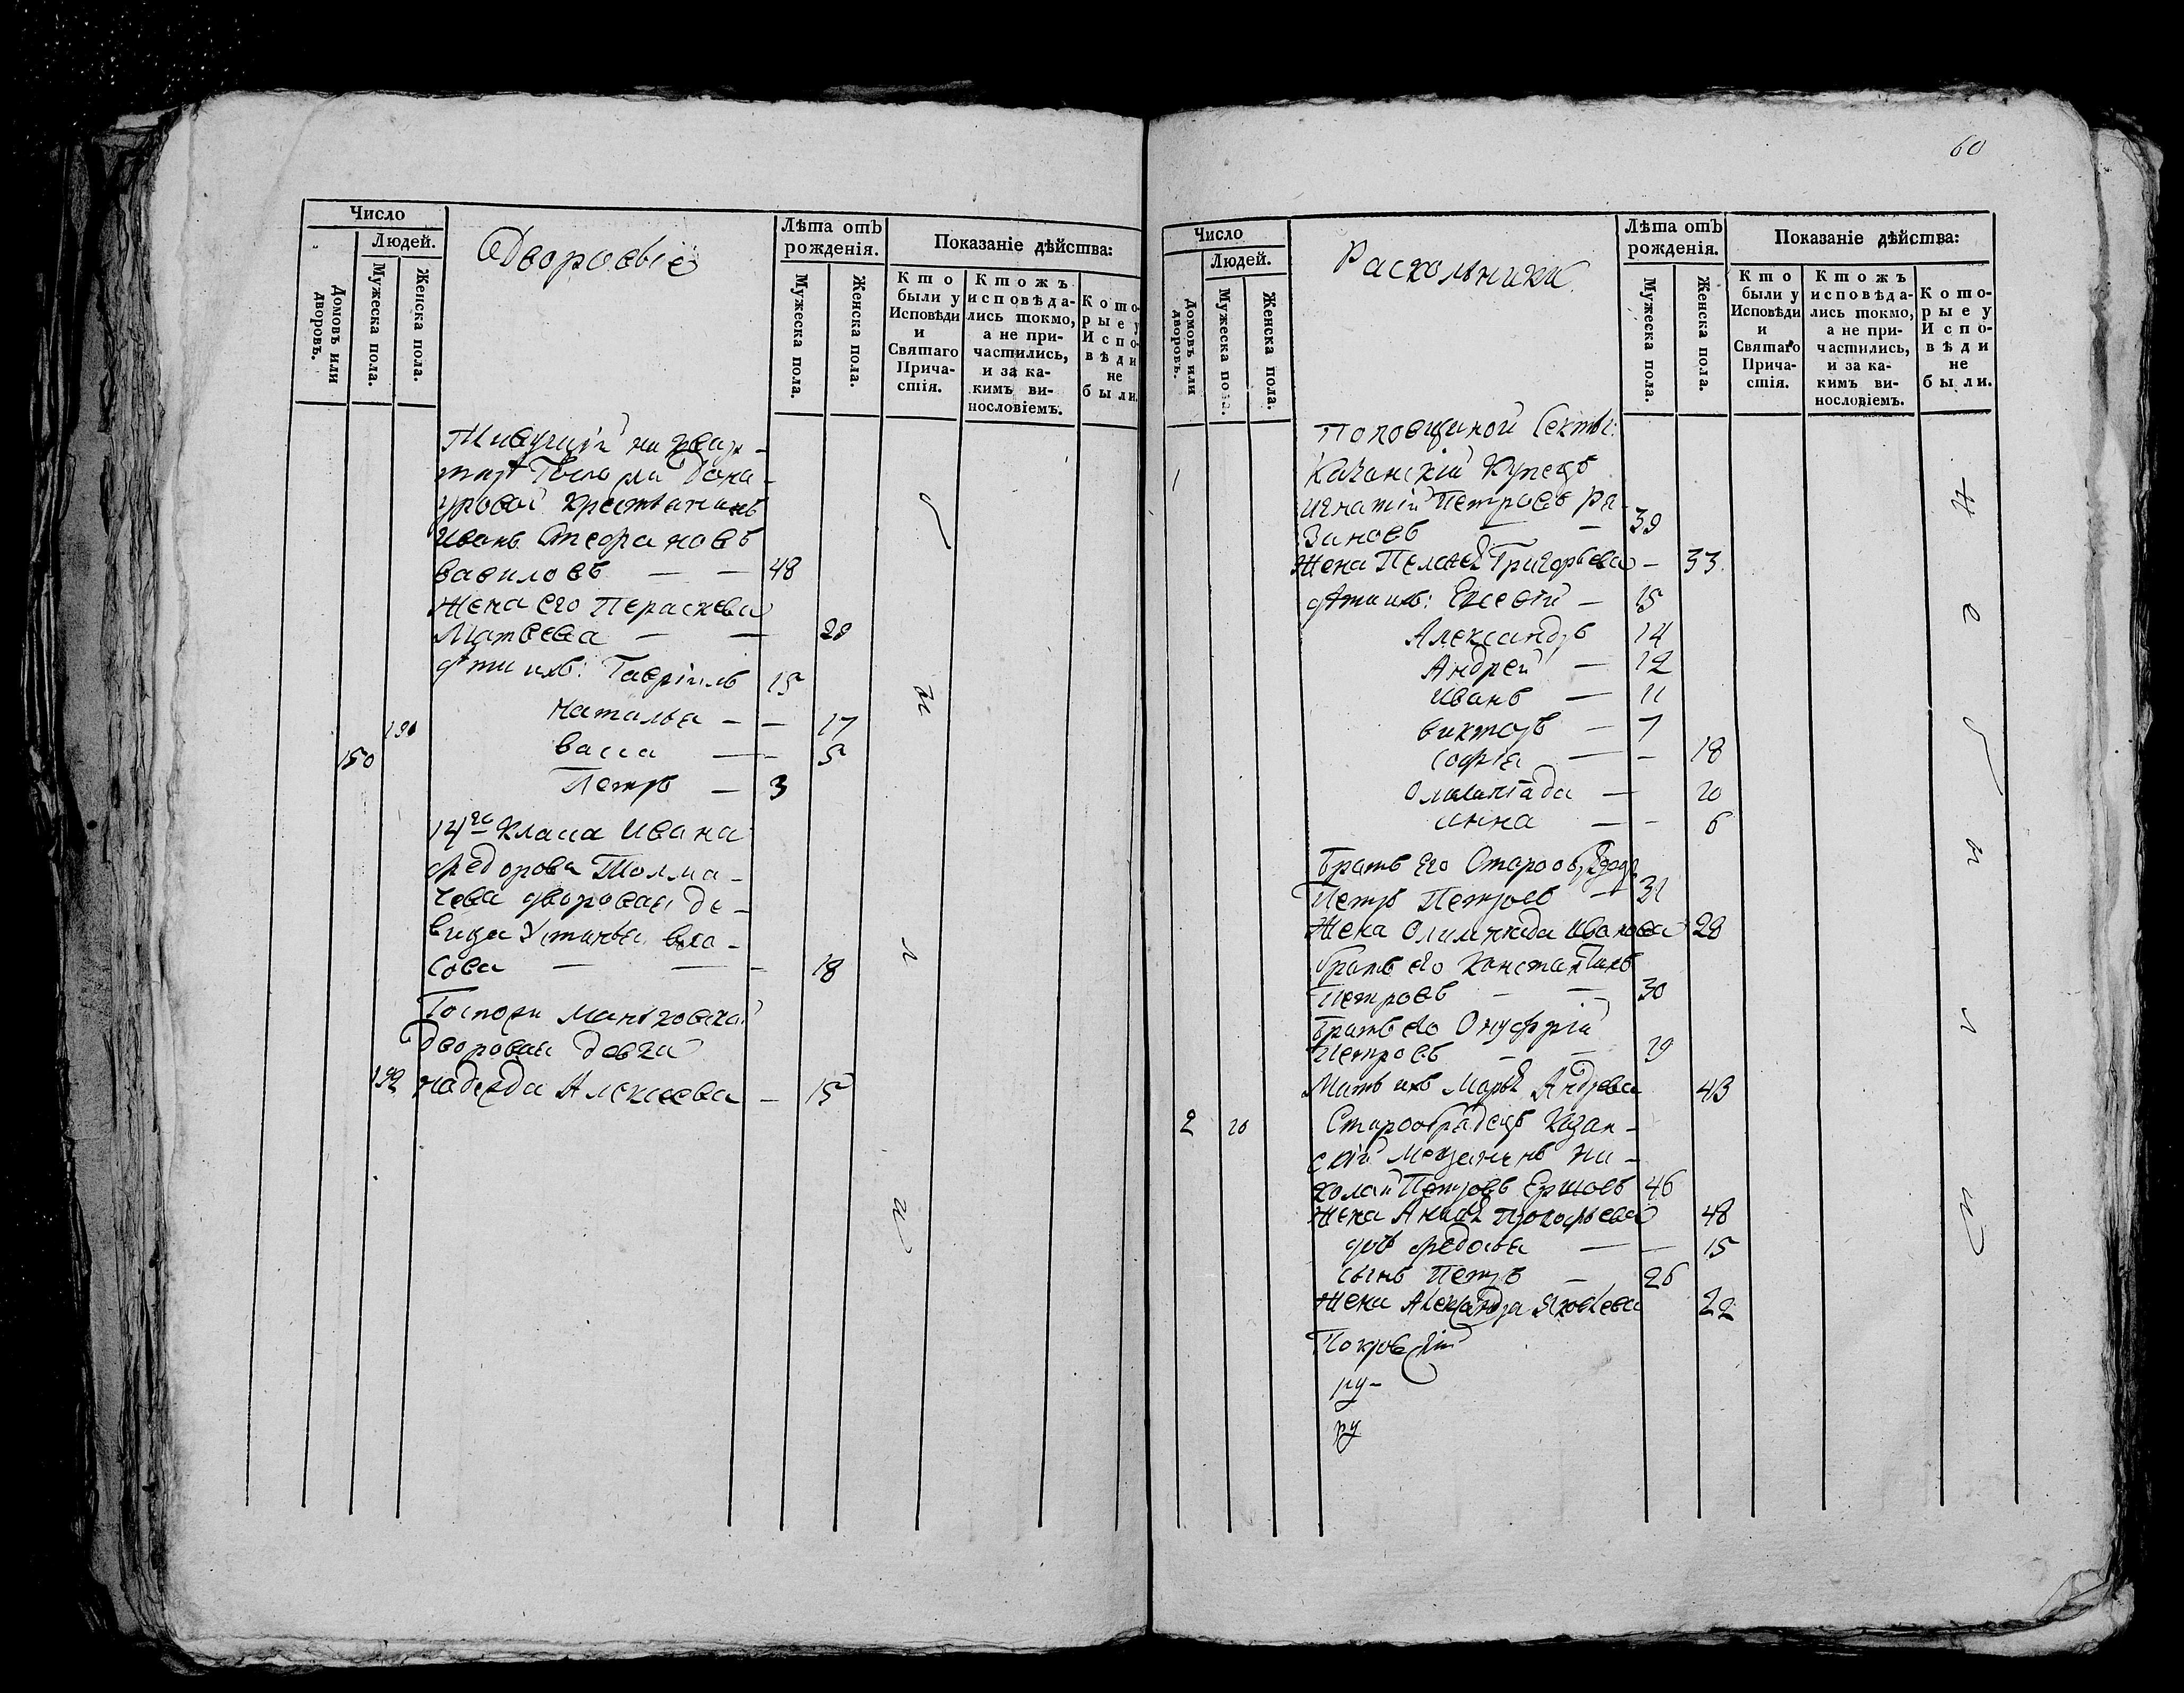 Число
Людей.
Домовъ или дворовъ.
Мужеска пола.
Женска пола.
Дворовыіе
Лѣта отъ
рожденія.
Мужеска пола.
Женска пола.
Показаніе дѣйства:
Кто
были у
Исповѣди
и
Святаго
Прича-
стія.
Ктожъ
исповѣда-
лись токмо,
а не при-
частились,
и за ка-
кимъ ви-
нословіемъ.
Кото-
рые у
Испо-
вѣди
не
были.
Живущій на квар-
Крестьянинъ
Иванъ Стефановъ
Вавиловъ — — 48
Жена его Параскева
Матвеева — — 29
дѣти ихъ: Гавріилъ 15
Наталья — — 17
Васса — — 5
150
Петръ — 3
14го Класа Ивана
Федорова Толма-
чева дворовая де-
вица Устинья Вла-
сова — — — 18
Госпожи
Дворовая девка
192 Надежда Алексеева — 15
были
60
Число
Людей.
Домовъ или дворовъ.
Мужеска пола.
Женска пола.
Раскольники
Лѣта отъ
рожденія.
Мужеска пола.
Женска пола.
Показаніе дѣйства:
Кто
были у
Исповѣди
и
Святаго
Прича-
стія.
Ктожъ
исповѣда-
лись токмо,
а не при-
частились,
и за ка-
кимъ ви-
нословіемъ.
Кото-
рые у
Испо-
вѣди
не
были.
Поповщиной Секты:
1 Казанскій Купецъ
Игнатій Петровъ Ря-
зановъ — — 39
Жена Пелагея Григорьева — 33
дѣти ихъ: Евсевій — 15
Александръ 14
Андрей — 12
Иванъ — 11
Викторъ — 7
Софія — — 18
Олимпіада — 10
Анна — — 6
Братъ Его
Петръ Петровъ —
Жена Олимпіада Иванова 28
Братъ его Константинъ
Петровъ — — 30
Братъ его Онуфрій
Петровъ — — 19
Мать ихъ Марья Андреева 43
2 10 Старообрядецъ Казан-
скій мещанинъ Ни-
колай Петровъ Ершовъ 46
Жена Прокофьева 48
дочь Федосья — — 15
сынъ Петръ — 26
Жена Александра Яковлева 22
не были